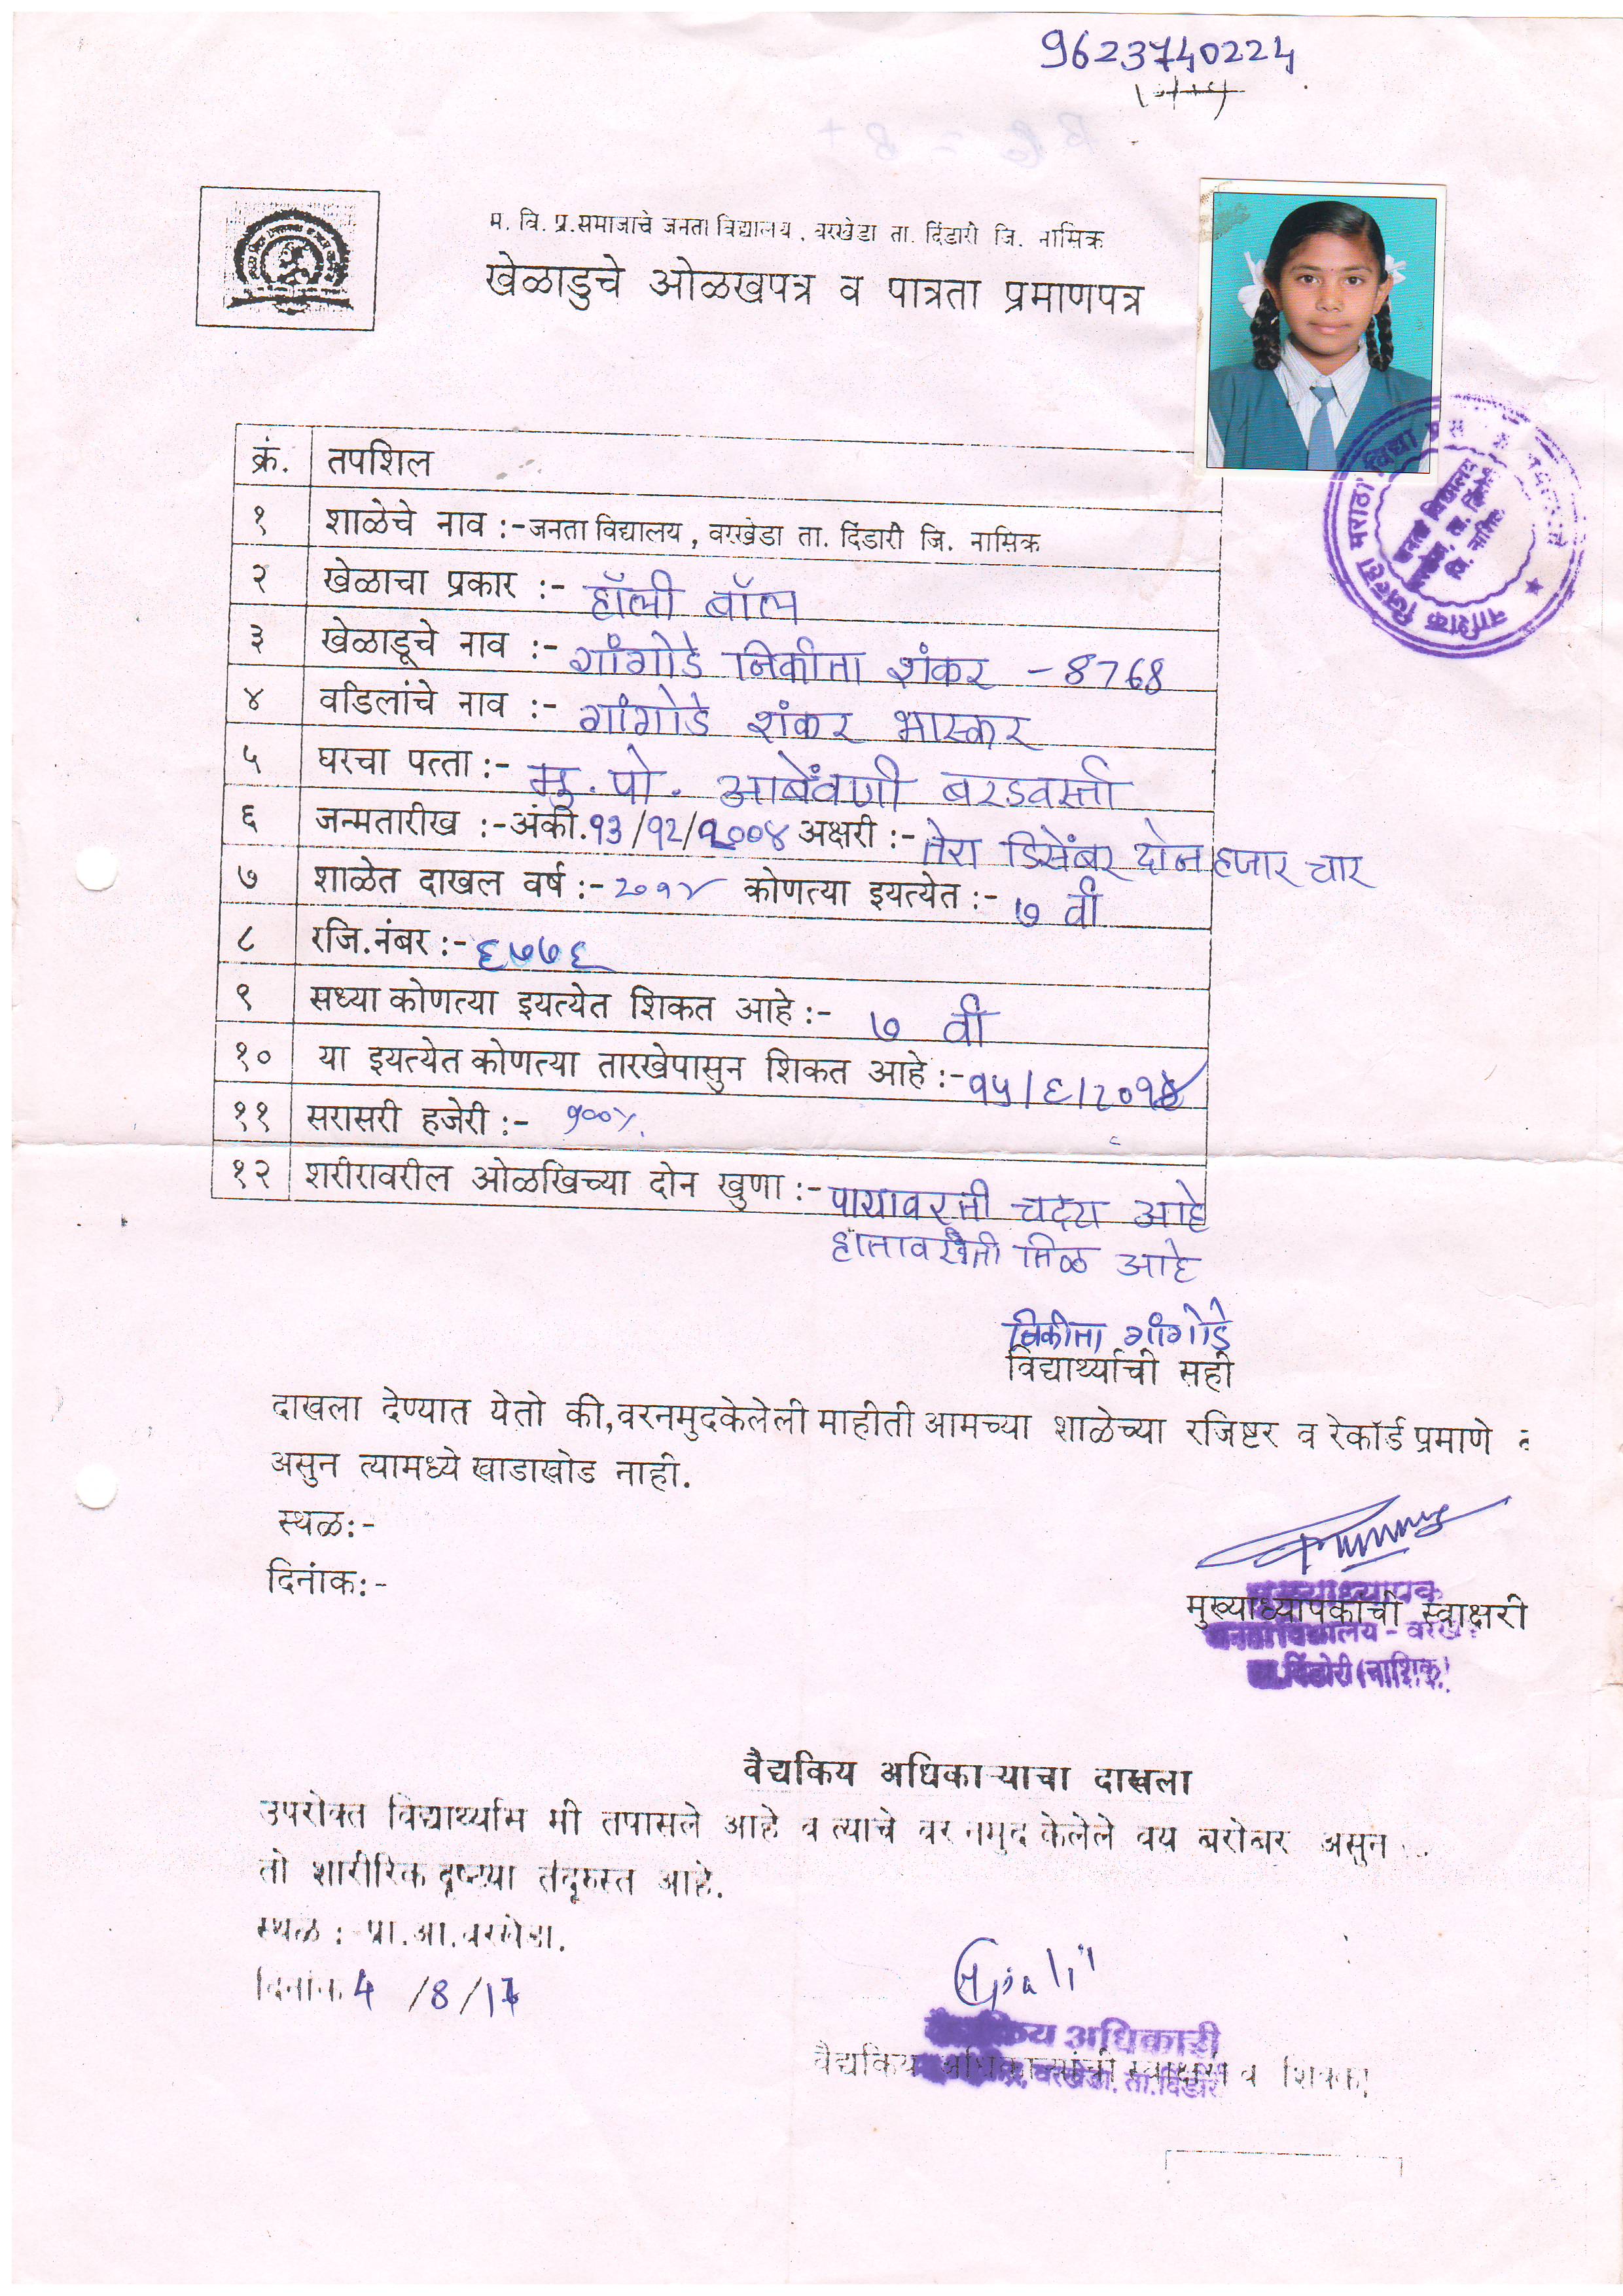 9623740224
म. वि. प्र.समाजाचे जनता विद्यालय, वरखेडा ता. दिंडारी जि. नासिक
खेळाडुचे ओळखपत्र व पात्रता प्रमाणपत्र
क्रं. तपशिल
१ शाळेचे नाव :- जनता विद्यालय, वरखेडा ता. दिंडारी जि. नासिक
२ खेळाचा प्रकार :- हॉली बॉल
३ खेळाडूचे नाव :- गांगोडे निकीता शंकर - 8768
४ वडिलांचे नाव :- गांगोडे शंकर भास्कर
५ घरचा पत्ता :- मु. पो. आबेंवणी बरडवस्ती
६ जन्मतारीख :- अंकी. १३/१२/२००४ अक्षरी :- तेरा डिसेंबर दोन हजार चार
७ शाळेत दाखल वर्ष :- २०१४ कोणत्या इयत्येत :- ७ वी
८ रजि.नंबर :- ६७७६
९ सध्या कोणत्या इयत्येत शिकत आहे :- ७ वी
१० या इयत्येत कोणत्या तारखेपासुन शिकत आहे :- १५/६/२०१
११ सरासरी हजेरी :- १००%.
१२ शरीरावरील ओळखिच्या दोन खुणा :- पायावरती चट्टा आहे
हातावरती तिळ आहे
निकीता गांगोडे
विद्यार्थ्याची सही
दाखला देण्यात येतो की,वरनमुदकेलेली माहीती आमच्या शाळेच्या रजिष्टर व रेकॉर्ड प्रमाणे
असुन त्यामध्ये खाडाखोड नाही.
स्थळ:-
दिनांक:-
मुख्याध्यापक
मुख्याध्यापकांची स्वाक्षरी
जनता विद्यालय - वरखे
ता.दिंडोरी (नाशिक)
वैद्यकिय अधिकाऱ्याचा दाखला
उपरोक्त विद्यार्थ्यास मी तपासले आहे व त्याचे वर नमुद केलेले वय बरोबर असुन
तो शारीरिक दृष्ट्या तंदूरुस्त आहे.
स्थळ : प्रा.आ.वरखेडा.
दिनांक 4 /8/1
वैद्यकिय अधिकारी
वैद्यकिय अधिकाऱ्यांची स्वाक्षरी व शिक्का
वरखेडा. ता.दिंडोरी
नाशिक जिल्हा मराठा विद्या
जनता विद्यालय
वरखेडा, ता. दिंडोरी
जि. नाशिक